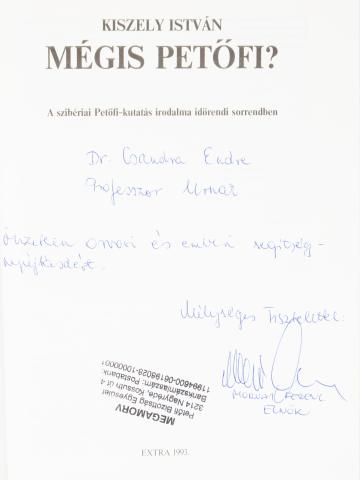 KISZELY ISTVÁN
MÉGIS PETŐFI?
A szibériai Petőfi-kutatás irodalma időrendi sorrendben
Dr. Csandra Endre
Professzor Urnak
Önzetlen orvosi és emberi segítség-
nyújtásáért.
Mélységes Tisztelettel:
MORVAI FERENC
ELNÖK
MEGAMORV
Petőfi Bizottság Egyesület
3214 Nagyréde, Kossuth út 4
Bankszámlaszám: Postabank
11994600-06198028-10000001
EXTRA 1993.